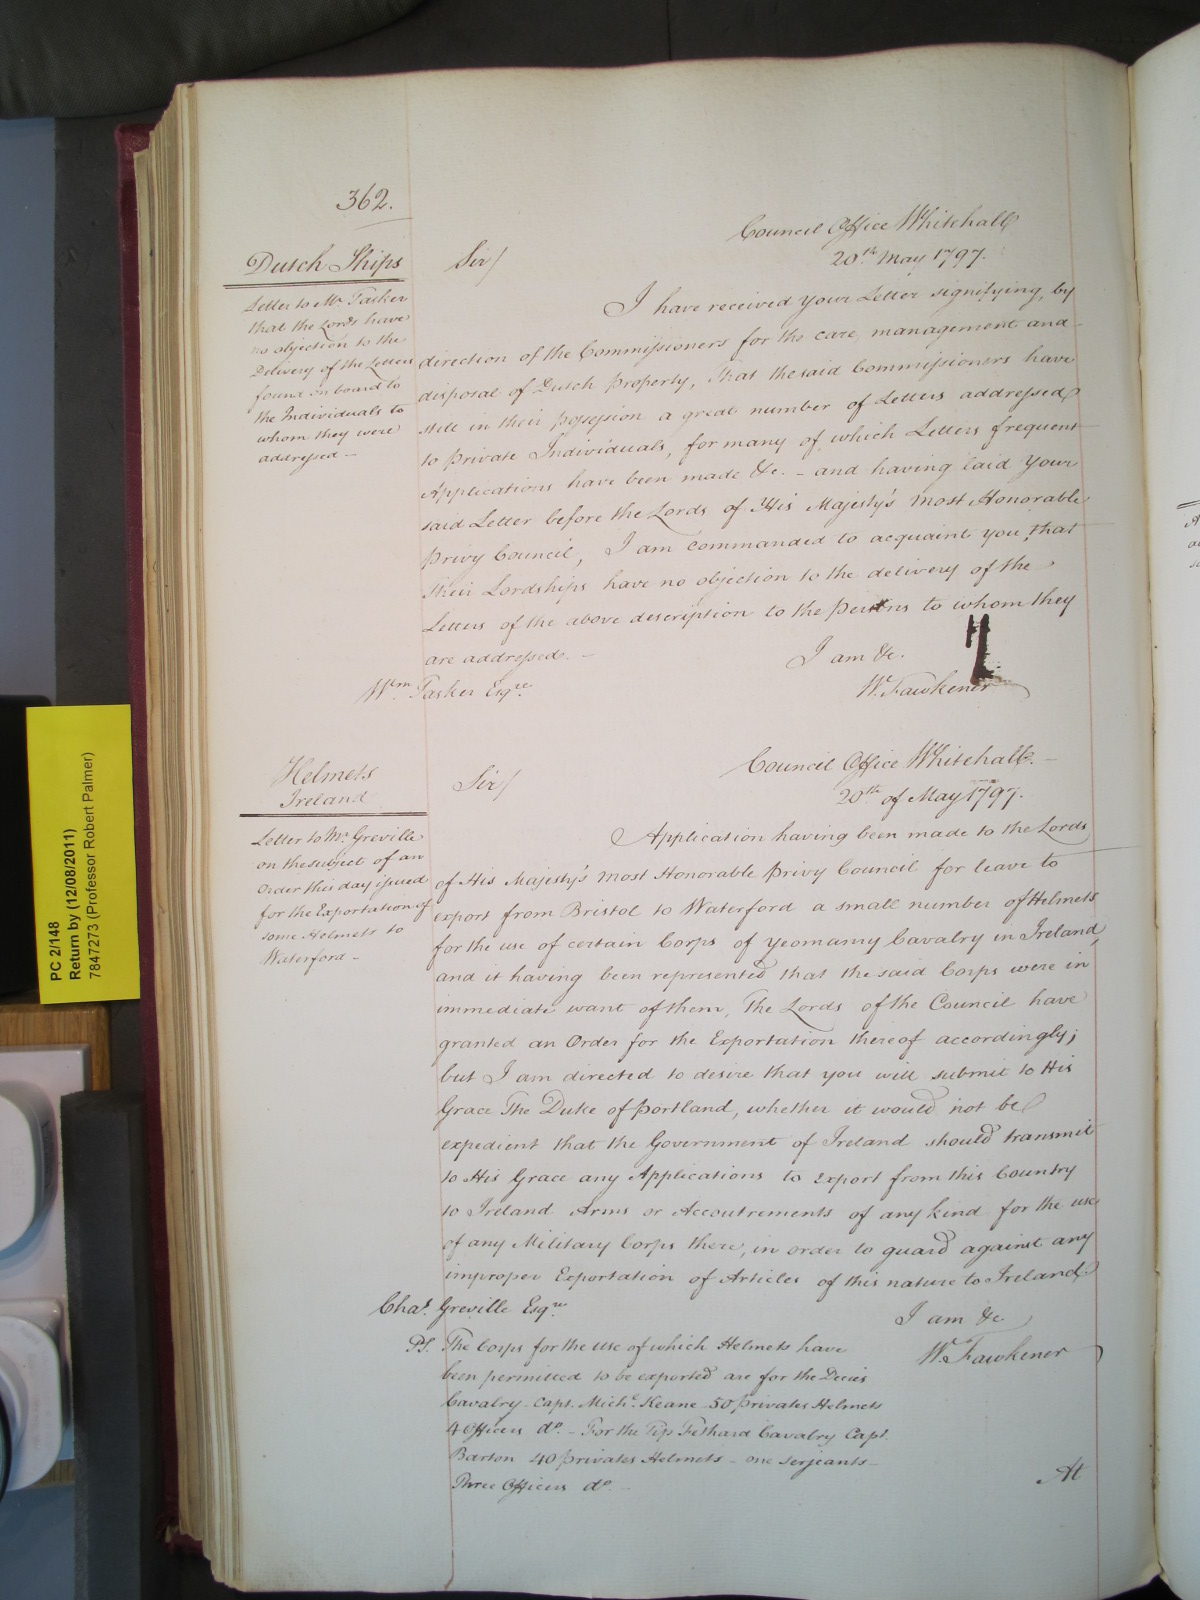 362.
Dutch Ships
Letter to Mr. Tasker
that the Lords have
no objection to the
Delivery of the Letters
found on board to
the Individuals to
whom they were
addressed —
Council Office Whitehall
20th. May 1797.
Sir/
I have received your Letter signifying, by
direction of the Commissioners for the care, management and
disposal of Dutch Property, that the said Commissioners have
still in their possession a great number of Letters addressed
to private Individuals, for many of which Letters frequent
Applications have been made &c. - and having laid your
said Letter before the Lords of His Majesty's most Honorable
Privy Council, I am commanded to acquaint you, that
their Lordships have no objection to the delivery of the
Letters of the above description to the Persons to whom they
are addressed. -
I am &c.
Wm. Tasker Esqre.
W. Fawkener
Helmets
Ireland
Letter to Mr. Greville
on the subject of an
Order this day issued
for the Exportation of
some Helmets to
Waterford -
Council Office Whitehall. -
20th of May 1797.
Sir/
Application having been made to the Lords
of His Majesty's most Honorable Privy Council for leave to
export from Bristol to Waterford a small number of Helmets
for the use of certain Corps of yeomanry Cavalry in Ireland,
and it having been represented that the said Corps were in
immediate want of them, The Lords of the Council have
granted an Order for the Exportation thereof accordingly;
but I am directed to desire that you will submit to His
Grace The Duke of Portland, whether it would not be
expedient that the Government of Ireland should transmit
to His Grace any Applications to export from this Country
to Ireland Arms or Accoutrements of any kind for the use
of any Military Corps there, in order to guard against any
improper Exportation of Articles of this nature to Ireland
Chas. Greville Esqre.
I am &c
W. Fawkener
PS. The Corps for the use of which Helmets have
been permitted to be exported are for the Decies
Cavalry - Capt. Michl. Keane - 50 privates Helmets
4 Officers do. - For the Tip Fethard Cavalry Capt.
Barton 40 privates Helmets - one serjeants -
Three Officers do. -
At
PC 2/148
Return by (12/08/2011)
7847273 (Professor Robert Palmer)